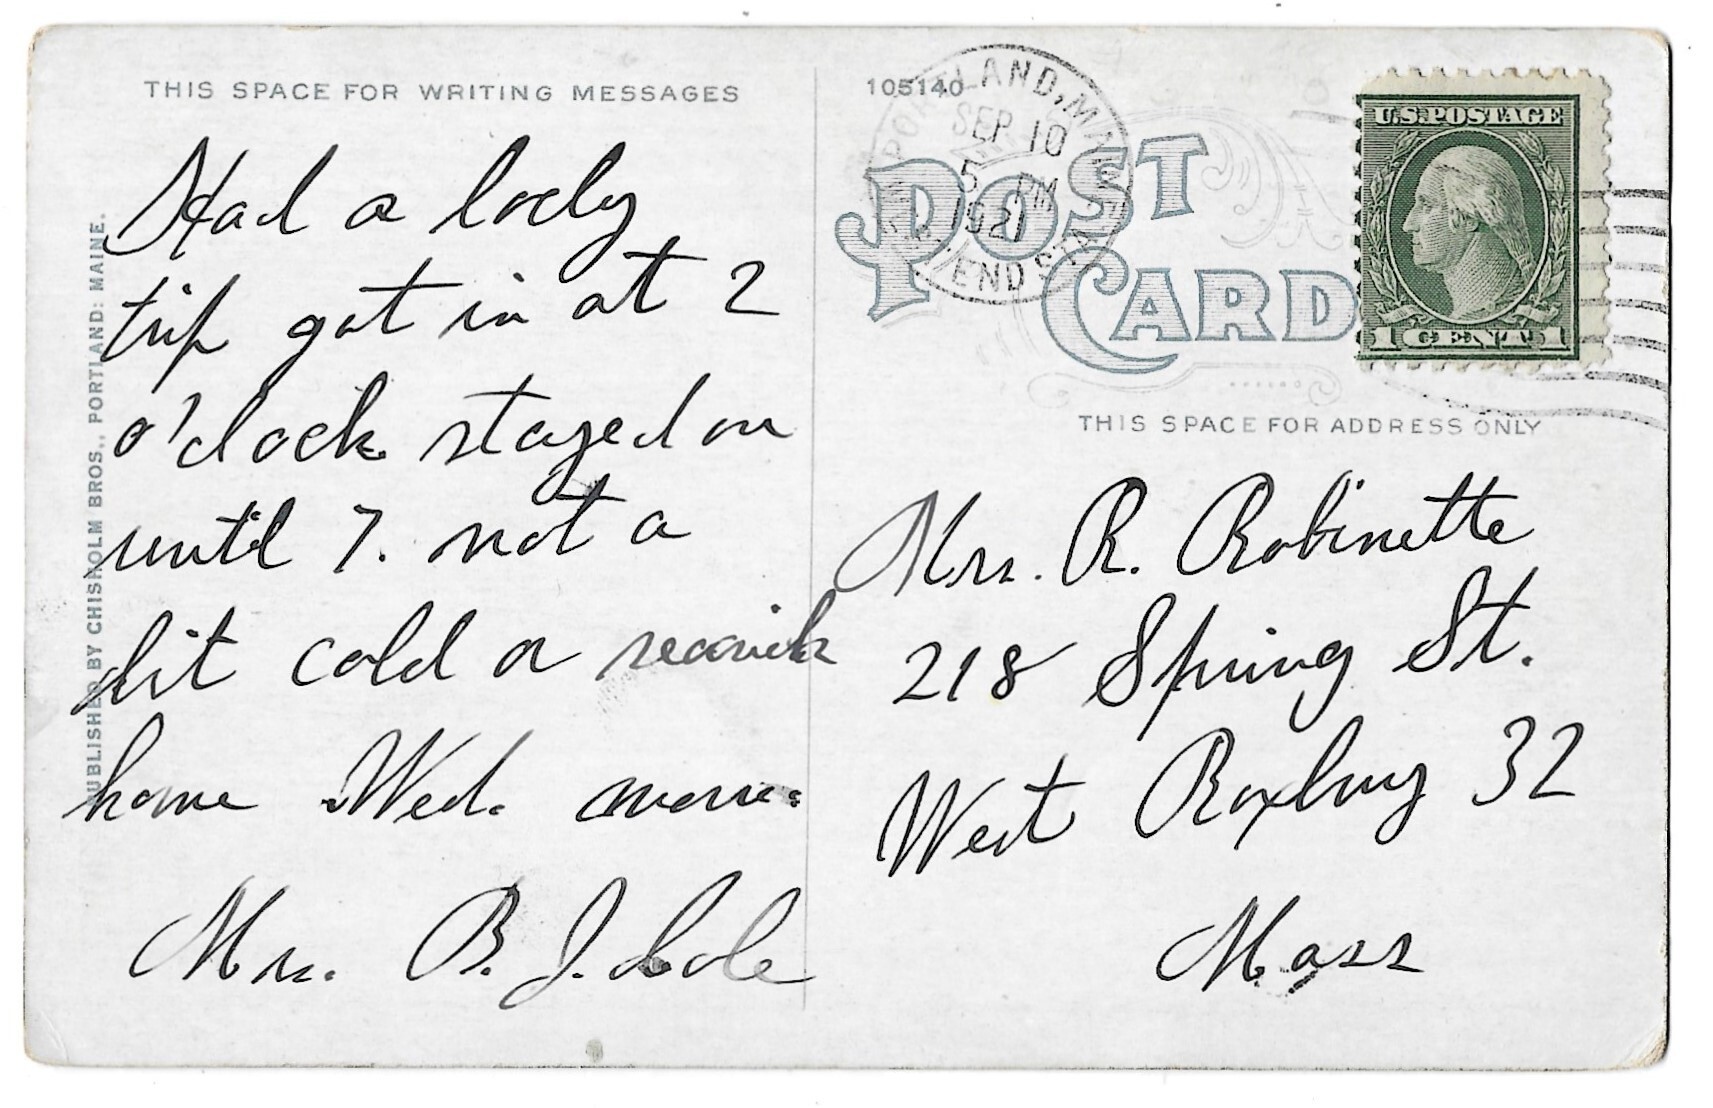 THIS SPACE FOR WRITING MESSAGES
Had a lovely
trip got in at 2
o'clock stayed on
until 7. not a
bit cold a
home Wed.
Mrs. B. J.
PUBLISHED BY CHISHOLM BROS., PORTLAND: MAINE.
105140
PORTLAND, MAINE
SEP 10
5 PM
1921
POST CARD
U.S. POSTAGE
1 CENT 1
THIS SPACE FOR ADDRESS ONLY
Mrs. R. Robinette
218 Spring St.
West Roxbury 32
Mass